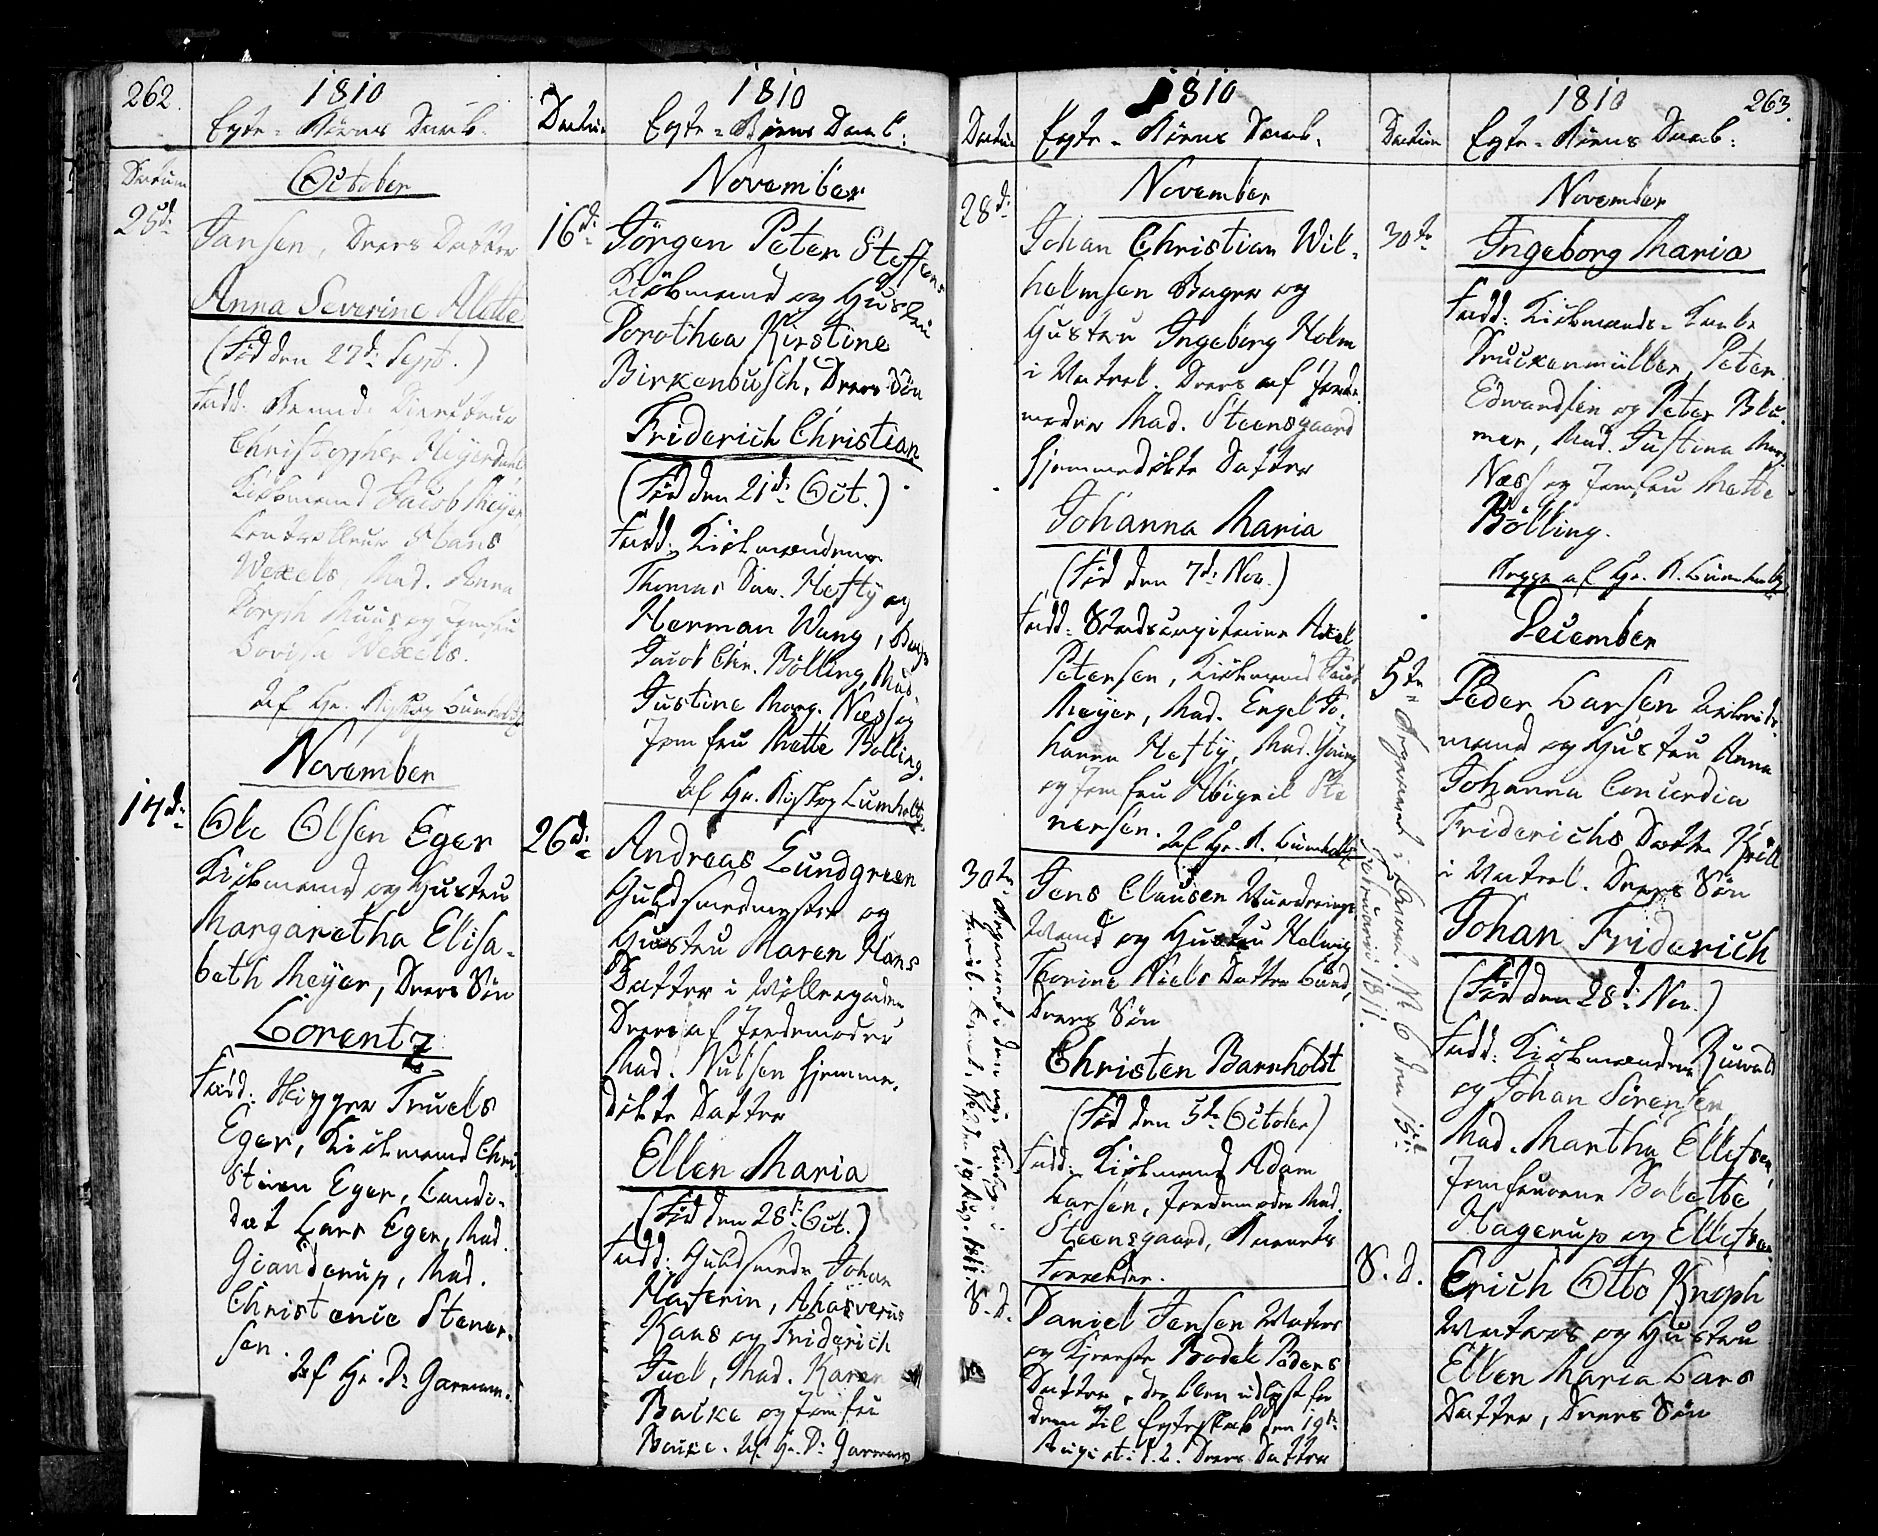 262.
1810
Egte-Børns Daab.
Datum
October
25de
Jansen, Deres Datter
Anna Severine Alette
(Fød den 27de Sept.)
Fadd.
Christopher Heyerdahl
Kiøbmand Jacob Meyer
Controlleur Hans
Wexels, Mad. Anna
Dorph Muus og Jomfru
Lovisa Wexels.
af Hr. Biskop Lumholtz
November
14de
Ole Olsen Eger
Kiøbmand og Hustru
Margaretha Elisa-
beth Meyer, Deres Søn
Lorentz
Fadd. Skipper Truels
Eger, Kiøbmand Chri-
stian Eger, Candi-
dat Lars Eger, Mad.
Gianderup, Mad.
Christence Stener-
sen.
Af Hr. D. Garmann.
Datum
1810
Egte-Børns Daab:
November
16de
Jörgen Peter Steffens
Kiøbmand og Hustru
Dorothea Kirstine
Birkenbusch, Deres Søn
Friderich Christian
(Fød den 21de Oct.)
Fadd. Kiøbmændene
Thomas Hefty og
Herman Wung, Bager
Jacob Chr. Bölling, Mad.
Justine Marg. Næss og
Jomfru Mette Bölling.
Af Hr. Biskop Lumholtz
26de
Andreas Lundgreen
Guldsmedmester og
Hustru Maren Hans
Datter i Vollegaden
Deres af Jordemoder
Mad. Nielsen hjemme-
døbte Datter
Ellen Maria
(Fød den 28de Oct.)
Fadd: Guldsmede Johan
Haterin, Ahasverus
Kaas og Friderich
Juel, Mad. Karen
Balke og Jomfru
Balke. Af Hr. D. Garmann
Datum
1810
Egte-Børns Daab.
November
28de
Johan Christian Wil-
helmsen Bager og
Hustru Ingeborg Holm
i Vatrel. Deres af Jorde-
moder Mad. Steensgaard
hjemmedøbte Datter
Johanna Maria
(Fød den 7de Nov.)
Fadd: Stadscapitaine Axel
Petersen, Kiøbmand Jacob
Meyer, Mad. Engel Jo-
hanna Hefty, Mad.
og Jomfru Abigael Ste-
nersen. Af Hr. B. Lumholtz
30te
Jens Clausen Vurderings-
Mand og Hustru Helwig
Thorine Niels Datter Lund,
Deres Søn
Christen Barnholdt
(Fød den 5te October)
Fadd: Kiøbmand Adam
Larsen, Jordemoder Mad.
Steensgaard, Barnets
Forældre.
S. D.
Daniel Jensen Matros
og Kjereste Bodel Peders
Datter, der blev udlyst for
dem til Egteskab den 19de
August: Deres Datter
Datum
1810
263.
Egte-Børns Daab:
November
30te
Ingeborg Maria
Fadd: Kiøbmænd-
Druckenmüller, Peter
Edwardsen og Peter Blö-
mer, Mad. Justina Marg.
Næss og Jomfru Mette
Bölling.
Begge af Hr. B. Lumholtz
December
5te
Peder Larsen Arbeids-
mand og Hustru Anna
Johanna Concordia
Friderichs Datter Krill
i Vatrel. Deres Søn
Johan Friderich
(Fød den 28de Nov.)
Fadd: Kiøbmændene
og Johan Sörensen
Mad. Martha Ellefsen,
Jomfruerne Bolette
Hagerup og Ellefsen.
S. D.
Erich Otto Knoph
Matros og Hustru
Ellen Maria Lars
Datter, Deres Søn